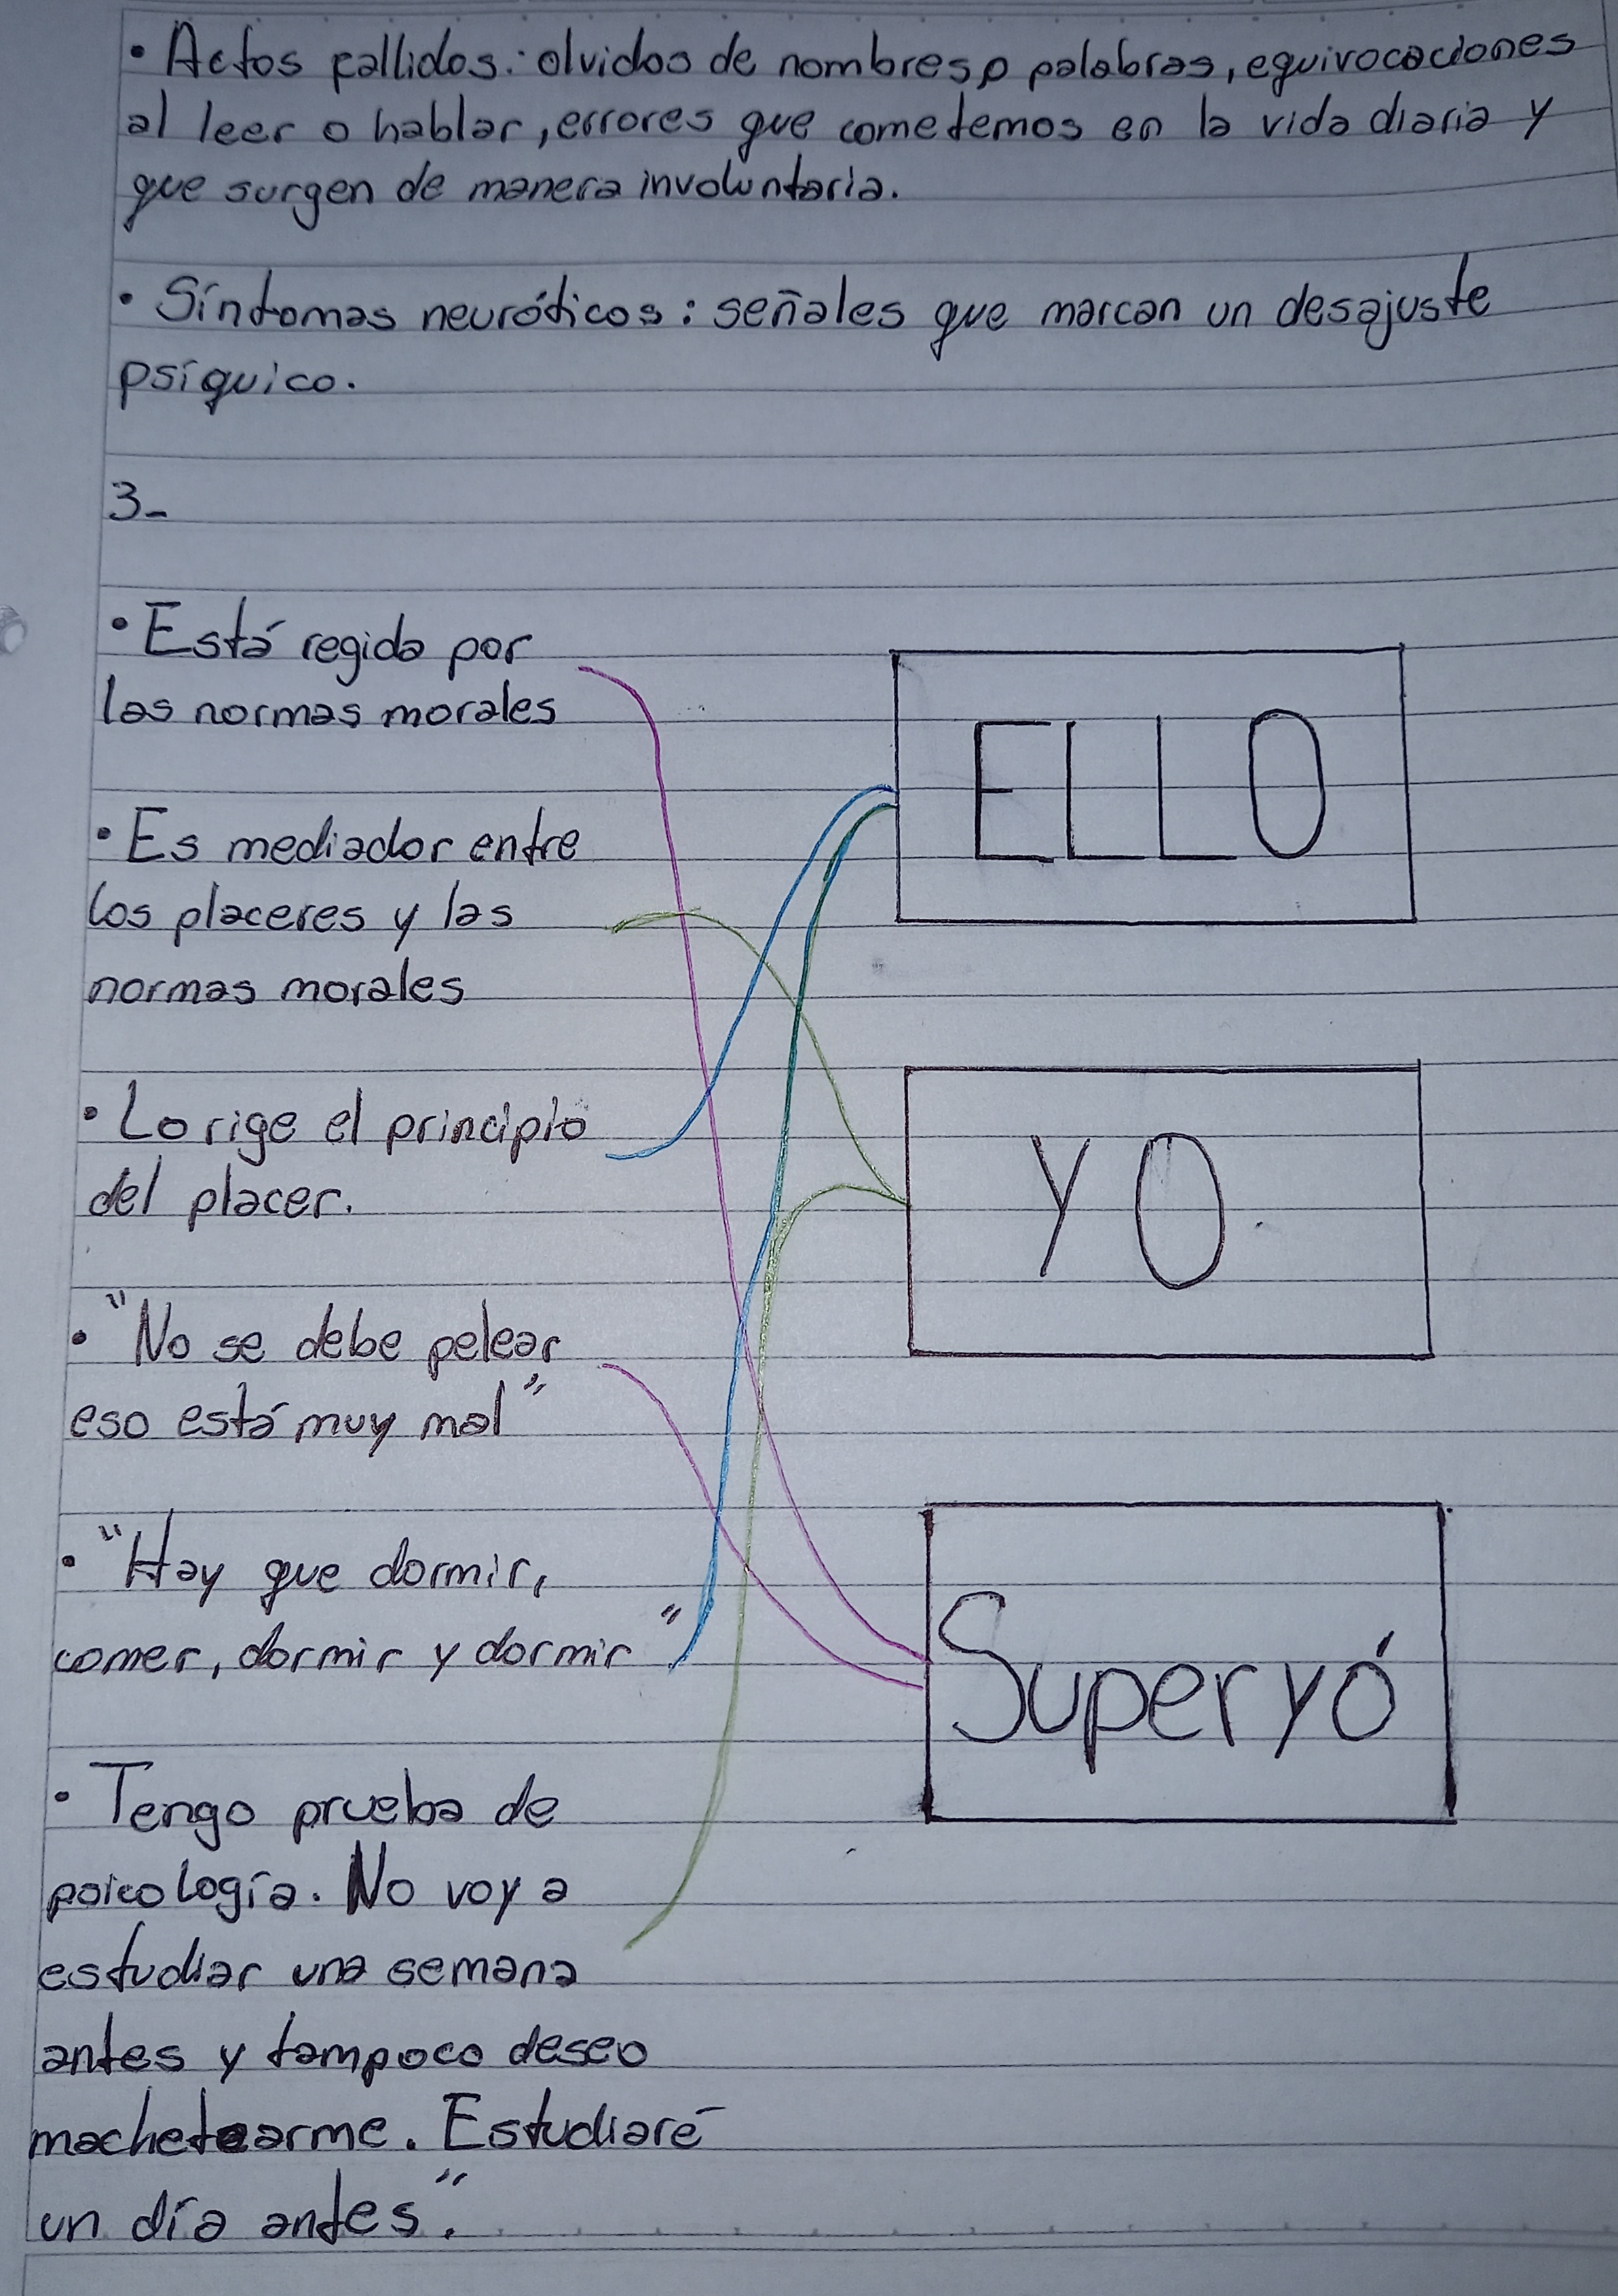 • Actos fallidos: olvidos de nombres o palabras, equivocaciones
al leer o hablar, errores que cometemos en la vida diaria y
que surgen de manera involuntaria.
• Síntomas neuróticos: señales que marcan un desajuste
psíquico.
3-
• Está regido por
las normas morales
ELLO
• Es mediador entre
los placeres y las
normas morales
• Lo rige el principio
del placer.
YO
• "No se debe pelear
eso está muy mal"
• "Hay que dormir,
comer, dormir y dormir"
Superyó
• Tengo prueba de
psicología. No voy a
estudiar una semana
antes y tampoco deseo
machetearme. Estudiaré
un día antes".